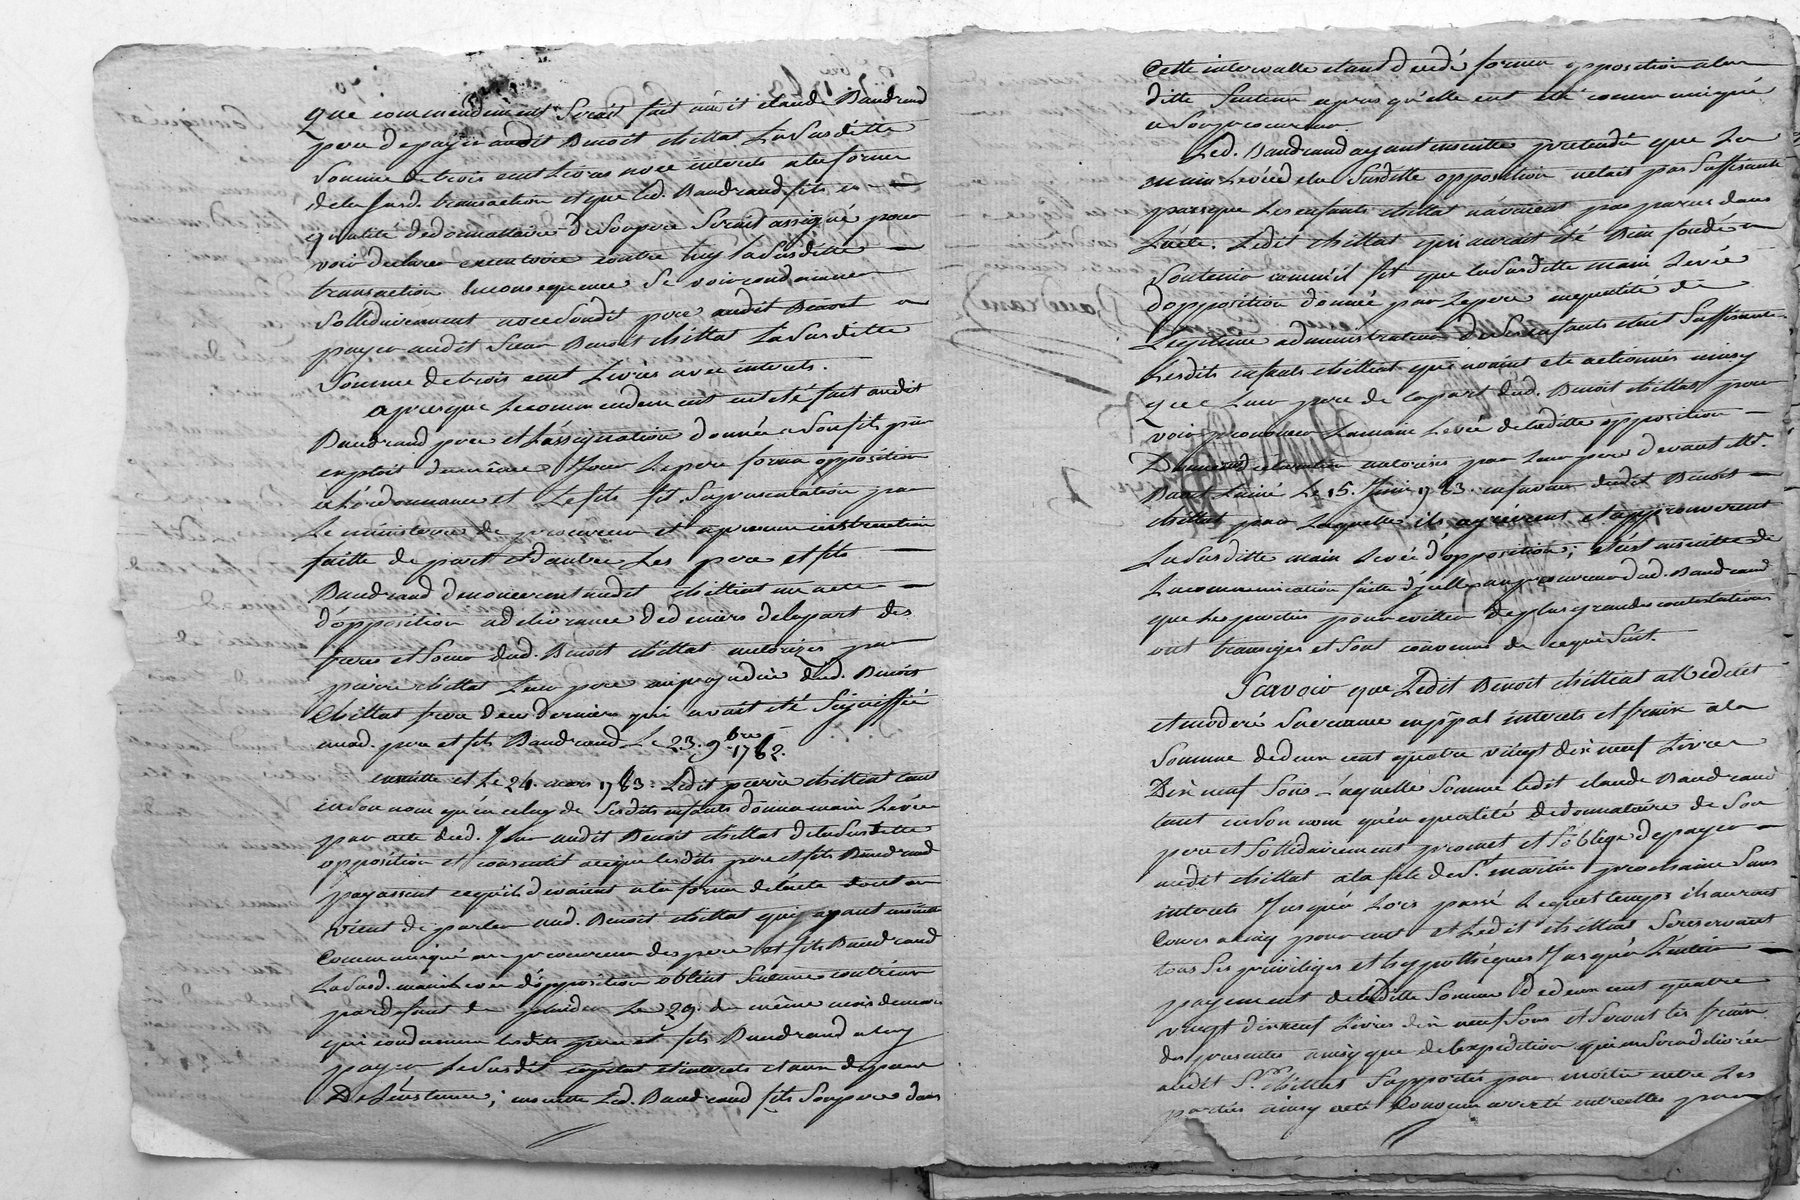 que commendement Serait fait audit claude Baudrand
pere de payer audit Benoit chillat La Susditte
Somme de trois cent Livres avec interets a la forme
de la Susd. transaction et que led. Baudrand fils en
qualité de donnattaire de Son pere Serait assigné pour
voir declarer executoire contre luy la Susditte
transaction en consequence Se voir condamner
Sollidairement avec Sondit pere audit Benoit
payer audit Sieur Benoit chillat La Susditte
Somme de trois cent Livres avec interets.
apres que Le commendement eut eté fait audit
Baudrand pere et L'assignation donnée a Son fils par
exploit du même Jour Le pere forma opposition
a L'ordonnance et Le fils fit Sa presentation par
Le ministere de procureur et apres une instruction
faitte de part et d'autre Les pere et fils
Baudrand denoncerent audit chillat un acte
d'opposition a delivrance de deniers de la part des
freres et Soeur dud. Benoit chillat autorizés par
pierre chillat Leur pere au prejudice dud. Benoit
Chillat frere de ces derniers qui avait eté Signiffié
auxd. pere et fils Baudrand Le 23. 9bre 1782.
ensuitte et Le 24. mars 1783. Ledit pierre chillat tant
en Son nom qu'en celuy de Sesdits enfants donna main Levée
par acte dud. Jour audit Benoit chillat de la Susditte
opposition et consentit a ce que lesdits pere et fils Baudrand
payassent ce qu'ils devaient a la forme de l'acte dont on
vient de parler aud. Benoit chillat qui ayant ensuitte
Communiqué au procureur des pere et fils Baudrand
La Susd. main Levée d'opposition obtint Sentence contr'eux
par defaut de plaider Le 29. du même mois de mars
qui condamne lesdits pere et fils Baudrand a luy
payer Le Susdit capital et interets et aux depens
De L'instance; ensuitte Led. Baudrand fils Son pere dans
Cette intervalle etant decedé forma opposition a la
ditte Sentence apres qu'elle eut eté communiquée
a Son procureur.
Led. Baudrand ayant ensuitte pretendu que La
main Levée de la Susditte opposition n'etait pas Suffisante
parceque Les enfants chillat n'avaient pas parus dans
L'acte. Ledit chillat qui aurait eté Bien fondé a
Soutenir comm'il fit que la Susditte main Levée
d'opposition donnée par Le pere en qualité de
Legitime administrateur de Ses enfants etait Suffisante.
Lesdits enfants chillat qui avaient eté actionnés ainsy
que Leur pere de la part dud. Benoit chillat pour
voir prononcer La main Levée de laditte opposition
autorisés par Leur pere devant Me.
Baret L'ainé Le 15. Juin 1783. en faveur dudit Benoit
chillat par Laquelle ils agréerent et approuverent
La Susditte main Levée d'opposition; et c'est ensuitte de
La communication faite d'ycelle au procureur dud. Baudrand
que Les parties pour eviter de plus grandes contestations
ont transigés et Sont convenus de ce qui Suit.
Scavoir que Ledit Benoit chillat a Reduit
et moderé Sa creance en ppal interets et fraix a la
Somme de deux cent quatre vingt dix neuf Livres
Dix neuf Sous laquelle Somme ledit claude Baudrand
tant en Son nom qu'en qualité de donnataire de Son
pere et Sollidairement promet et S'oblige de payer
audit chillat a la fete de St. martin prochaine Sans
interets Jusqu'a Lors passé Lequel temps ils auront
Cours a cinq pour cent et Ledit chillat Se reservant
tous Ses privileges et hyppothéques Jusqu'a L'entier
payement de laditte Somme de deux cent quatre
vingt dix neuf Livres dix neuf Sous et Seront les fraix
des presentes ainsy que de L'expedition qui en Sera delivrée
audit Sr. chillat Supportés par moitié entre Les
parties ainsy arreté entr'elles pour